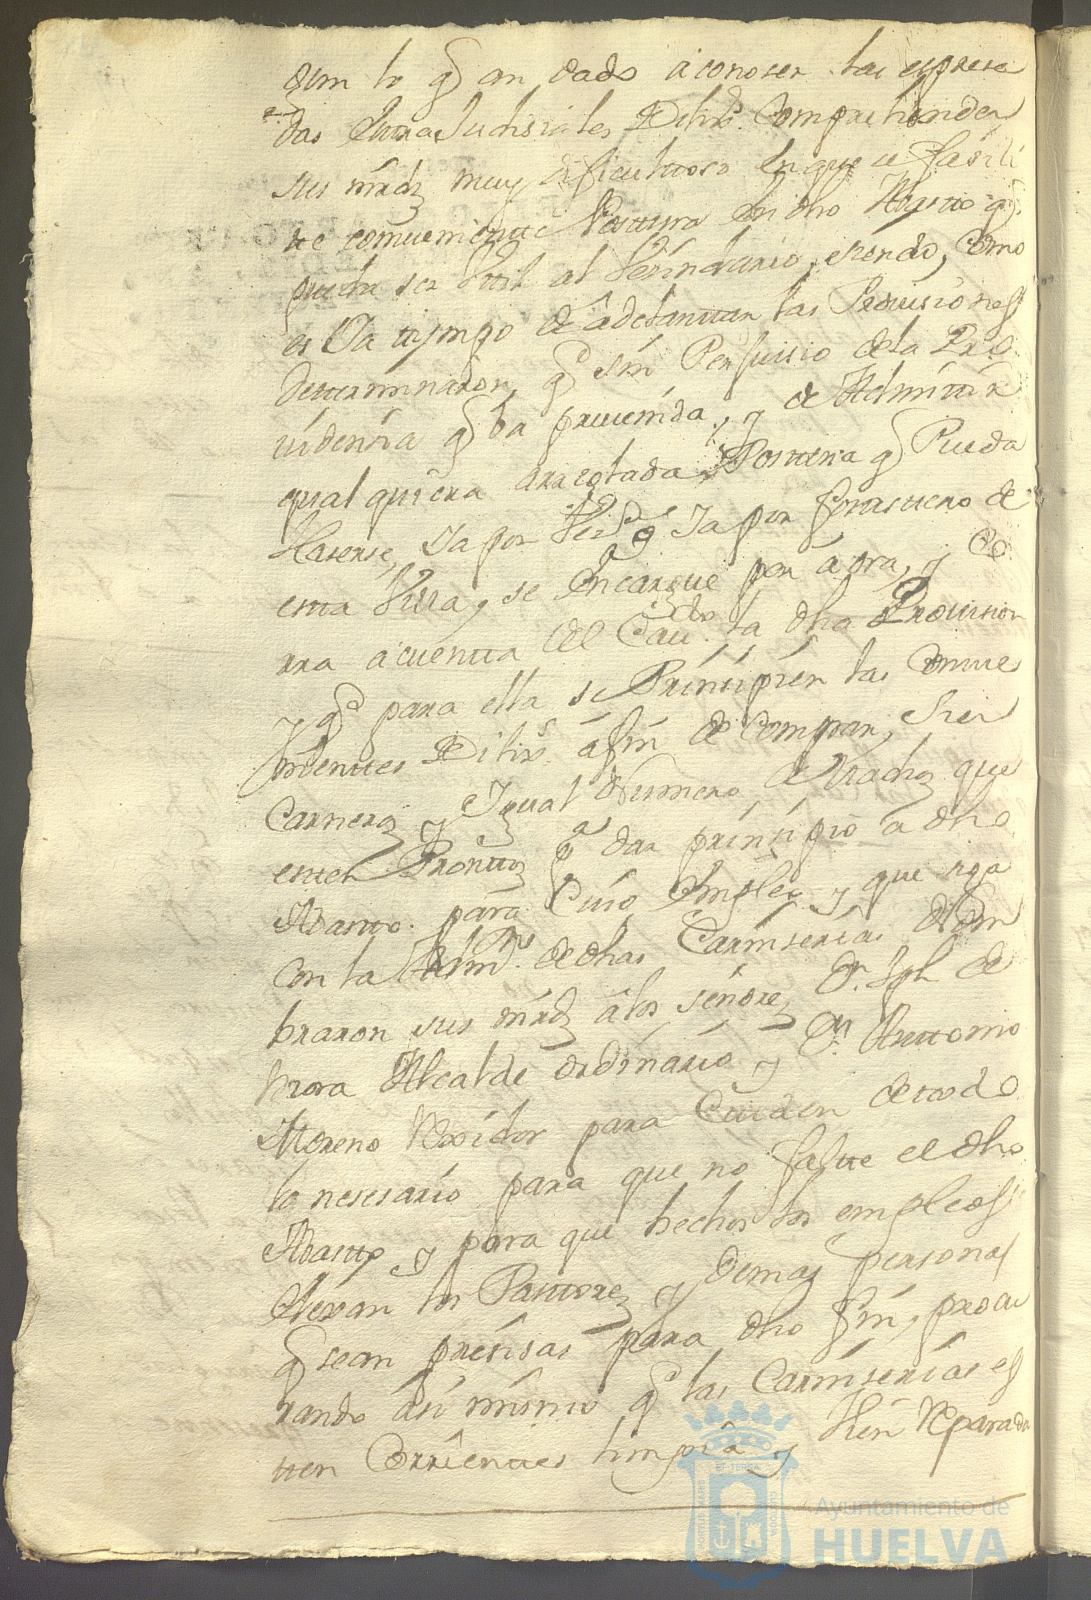 gun lo q̃ an dado a conoser las expresa
das extraJudisiales Dilixs. Comprehenden
sus mrds muy dificultoso en que se fasili
te comueniente Postura en dho Abasto q̃
pueda ser Util al Vesindario, siendo, como
es Ya tiempo de adelantar las Prouisiones
determinaron, q̃ sin Perjuisio de la Pro
uidensia q̃ ba preuenida, y de Admitir
qualquiera arreglada Postura q̃ Pueda
Haserse, Ya por Veso. o Ya por forastero de
esta Villa, se Encargue por aora, y Co
rra a cuenta del Cauildo. la dha Prouision
y q̃ para ella se Prinsipien las Comue
nientes Dilixs. a fin de Comprar, Sien
Carneros y Igual Numero de Machos que
esten Prontos pa dar prinsipio a dho
Abasto. para Cuio Empleo y que rija
con la Admon. de dhas Carniserias Nom
braron sus mrds a los señores Dn. Jph de
Mora Alcalde ordinario y Dn. Anttonio
Moreno Rexidor para Cuiden de todo
lo nesesario para que no falte el dho
Abasto y para que hechos los empleos
Elexan los Pastores y Demas personas
q̃ sean presisas para dho fin, procu
rando asi mismo q̃ las Carniserias es
ten Corrientes limpias y bien Reparadas
Ayuntamiento de
HUELVA